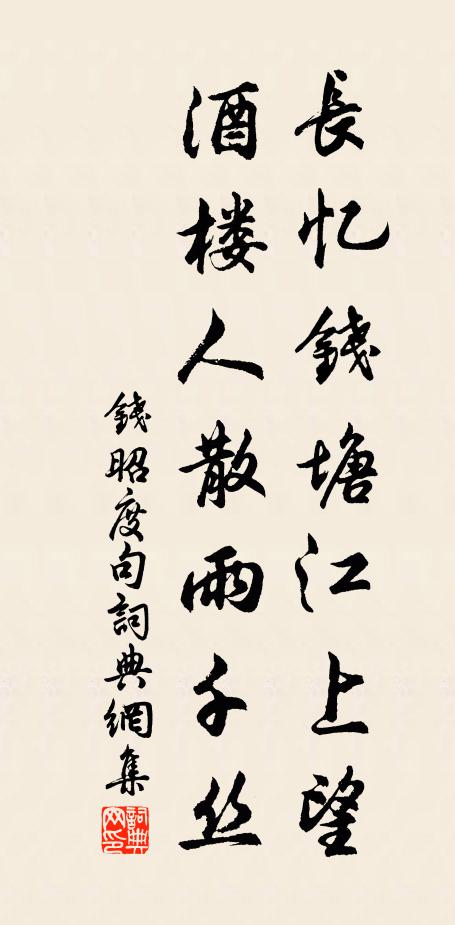 長忆錢塘江上望
酒楼人散雨千丝
錢昭度句詞典網集
詞典网印